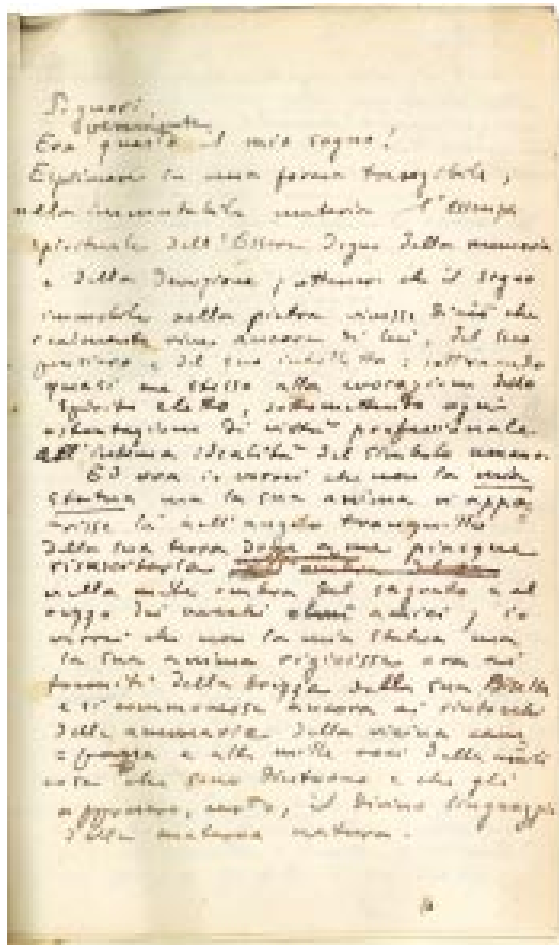 Signori,
veramente
Era questo il mio sogno!
Esprimere in una forma tangibile,
nella immutabile materia l'essenza
spirituale dell'Essere degno della memoria
e della devozione; ottenere che il segno
immobile nella pietra vivesse di ciò che
realmente vive ancora di lui, del suo
pensiero e del suo intelletto; sottraendo
quasi me stesso alla evocazione dello
Spirito eletto, sottomettendo ogni
ostentazione di virtù professionale
all'intima idealità del simbolo umano.
Ed ora io vorrei che non la mia
statua ma la sua anima vi appa
risse là nell'angolo tranquillo
della sua terra dove a me piacque
nella mite ombra del sagrato e al
rezzo dei vecchi olmi amici; io
vorrei che non la mia statua ma
la sua anima rigioisse ora ai
fremiti della brezza della sua
e si commovesse ancora ai rintocchi
dell'avemaria della vicina
e alle mille voci delle mille
cose che sono d'intorno e che gli
appresero, certo, il divino linguaggio
della materna natura.